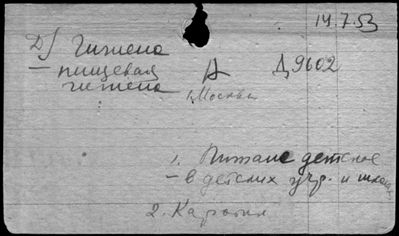 14.7.53
Д/ Гигиена
– пищевая гигиена
А Д9602
1, Москва
1. Питание детское
– в детских учр. и школах
2. Каротин